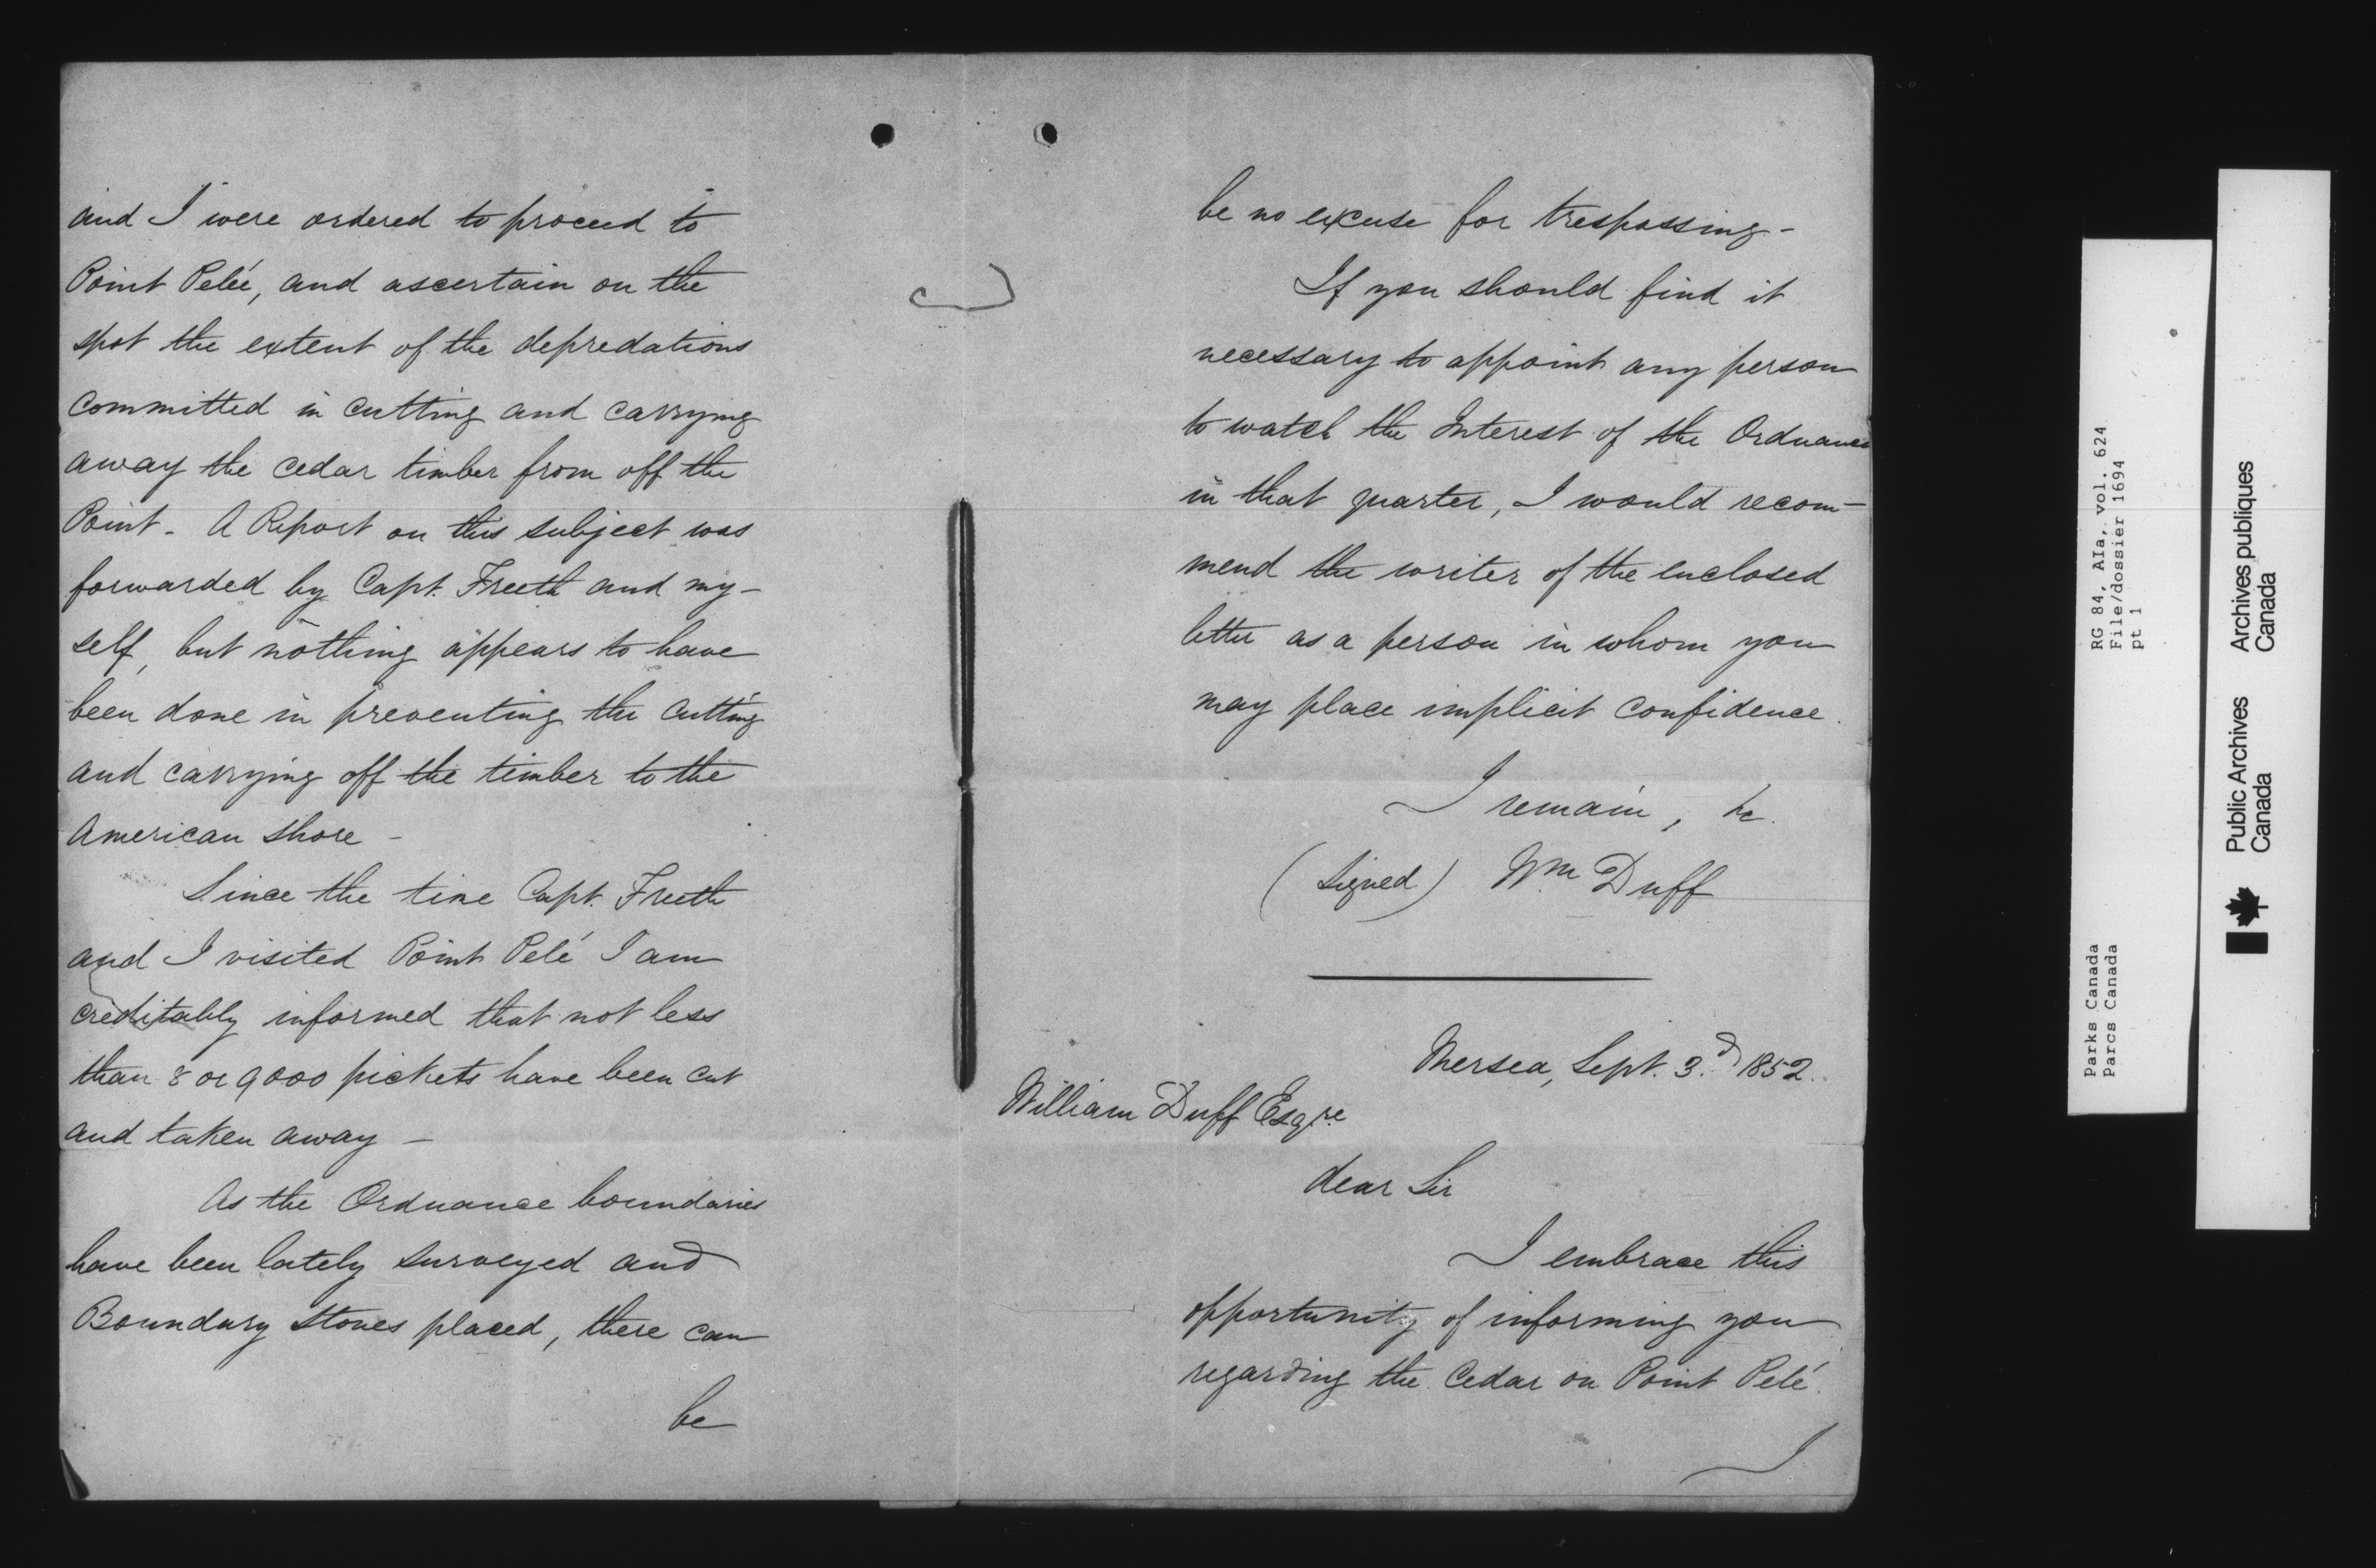 and I were ordered to proceed to
Point Pelée, and ascertain on the
spot the extent of the depredations
committed in cutting and carrying
away the cedar timber from off the
Point - A Report on this subject was
forwarded by Capt. Freeth and my-
self, but nothing appears to have
been done in preventing the cutting
and carrying off the timber to the
American shore -
Since the time Capt. Freeth
and I visited Point Pelé I am
creditably informed that not less
than 8 or 9000 pickets have been cut
and taken away -
As the Ordnance boundaries
have been lately surveyed and
Boundary Stones placed, there can
be
be no excuse for trespassing -
If you should find it
necessary to appoint any person
to watch the Interest of the Ordnance
in that quarter, I would recom-
mend the writer of the enclosed
letter as a person in whom you
may place implicit confidence.
I remain, &c.
(Signed) Wm Duff
Mersea, Sept. 3.d 1852.
William Duff Esqre
Dear Sir
I embrace this
opportunity of informing you
regarding the Cedar on Point Pelé.
I
Parks Canada
Parcs Canada
RG 84, AIa, vol. 624
File/dossier 1694
pt 1
Public Archives
Canada
Archives publiques
Canada